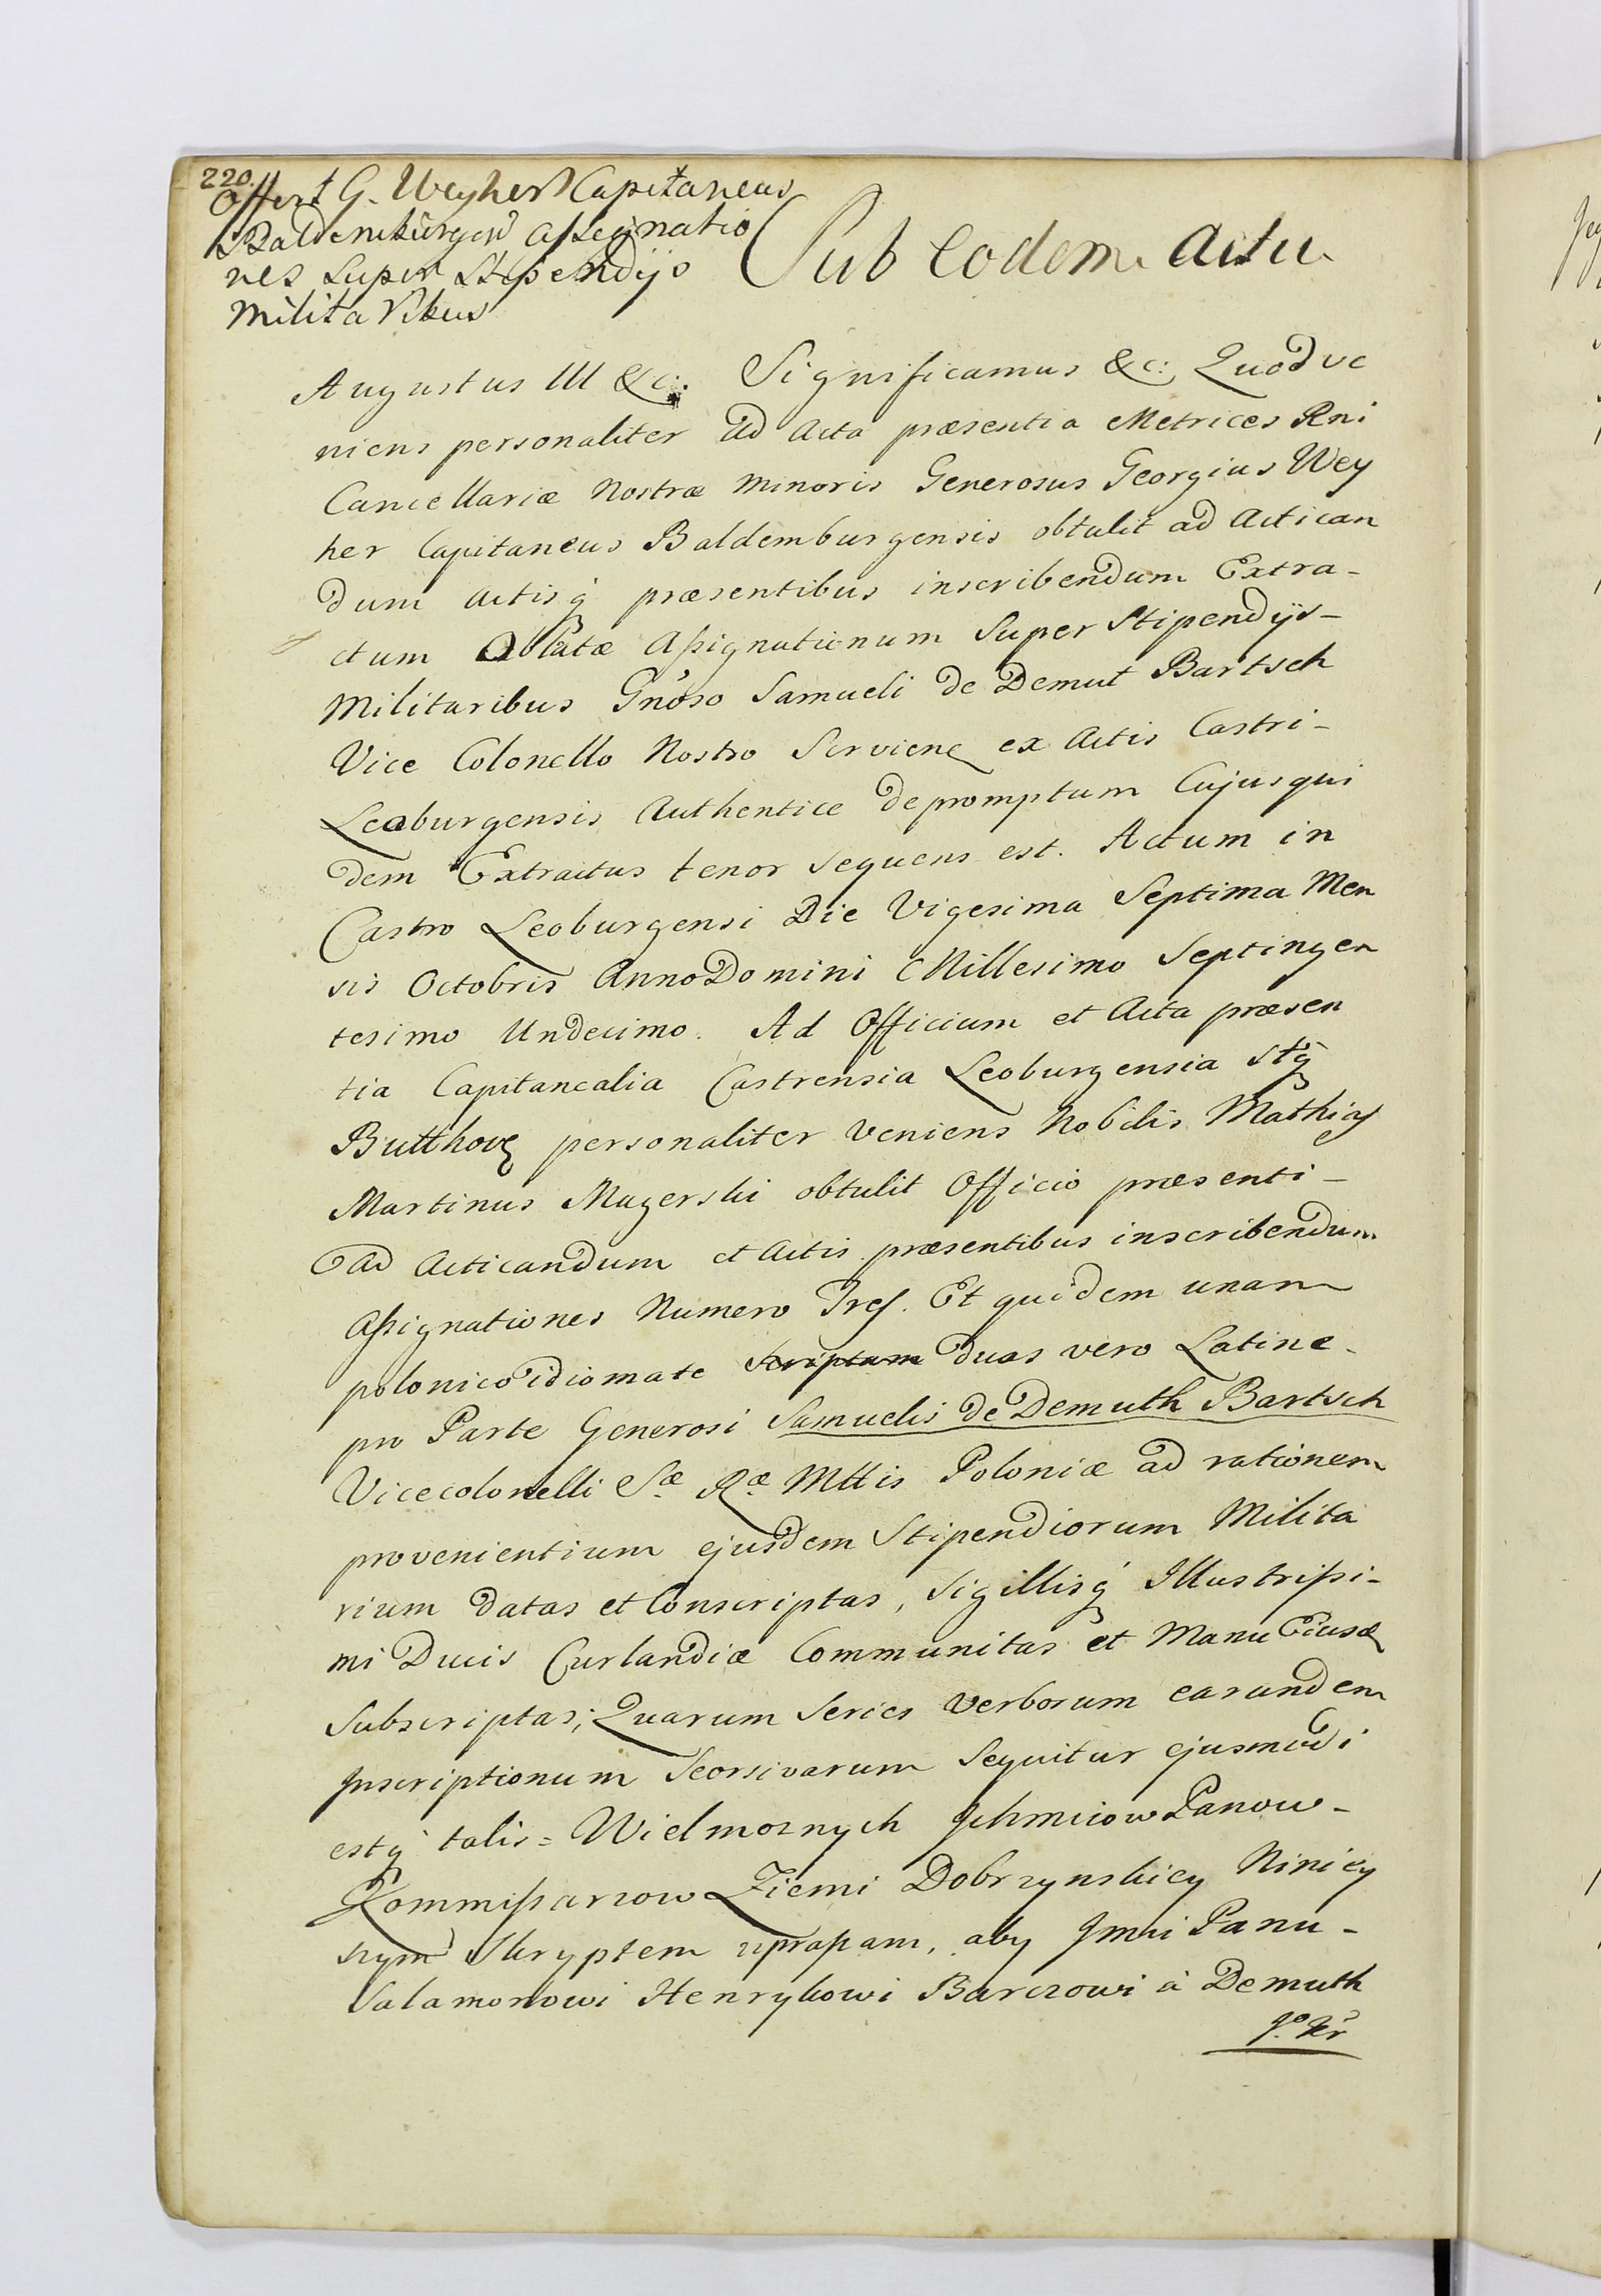 220.
Offert G. Weyher Capitaneus
Baldemburgen Assignatio
nes super Stipendijs
Militaribus
Sub Eodem Actu
Augustus III &c: Significamus &c: Quod ve
niens personaliter ad Acta præsentia Metrices Rni
Cancellariæ Nostræ Minoris Generosus Georgius Wey
her Capitaneus Baldemburgensis obtulit ad Actican
dum Actisq præsentibus inscribendum Extra-
ctum Oblatæ Assignationum Super Stipendijs-
Militaribus Gnoso Samueli de Demut Bartsch
Vice Colonello Nostro Servien ex Actis Castri-
Leoburgensis Authentice depromptum Cujusqui
dem Extractus tenor sequens est. Actum in
Castro Leoburgensi Die Vigesima Septima Men
sis Octobris Anno Domini Millesimo Septingen
tesimo Undecimo. Ad Officium et Acta præsen
tia Capitanealia Castrensia Leoburgensia Stq
Butthov personaliter veniens Nobilis Mathias
Martinus Magerski obtulit Officio præsenti-
ad Acticandum et Actis præsentibus inscribendum
Assignationes Numero Tres. Et quidem unam
polonico idiomate Scriptam duas vero Latine-
pro Parte Generosi Samuelis de Demuth Bartsch
Vicecolonelli Sæ Ræ Mttis Poloniæ ad rationem
provenientium ejusdem Stipendiorum Milita
rium datas et Conscriptas, Sigillisq Illustrissi-
mi Ducis Curlandiæ Communitas et Manu Eiusd
Subscriptas; Quarum Series verborum earundem
Inscriptionum Seorsivarum Sequitur ejusmodi
estq talis = Wielmoznych Ichmciow Panow-
Kommissarzow Ziemi Dobrzynskiey Niniey
szym Skryptem upraszam, aby Jmci Panu-
Salamonowi Henrykowi Barczowi à Demuth